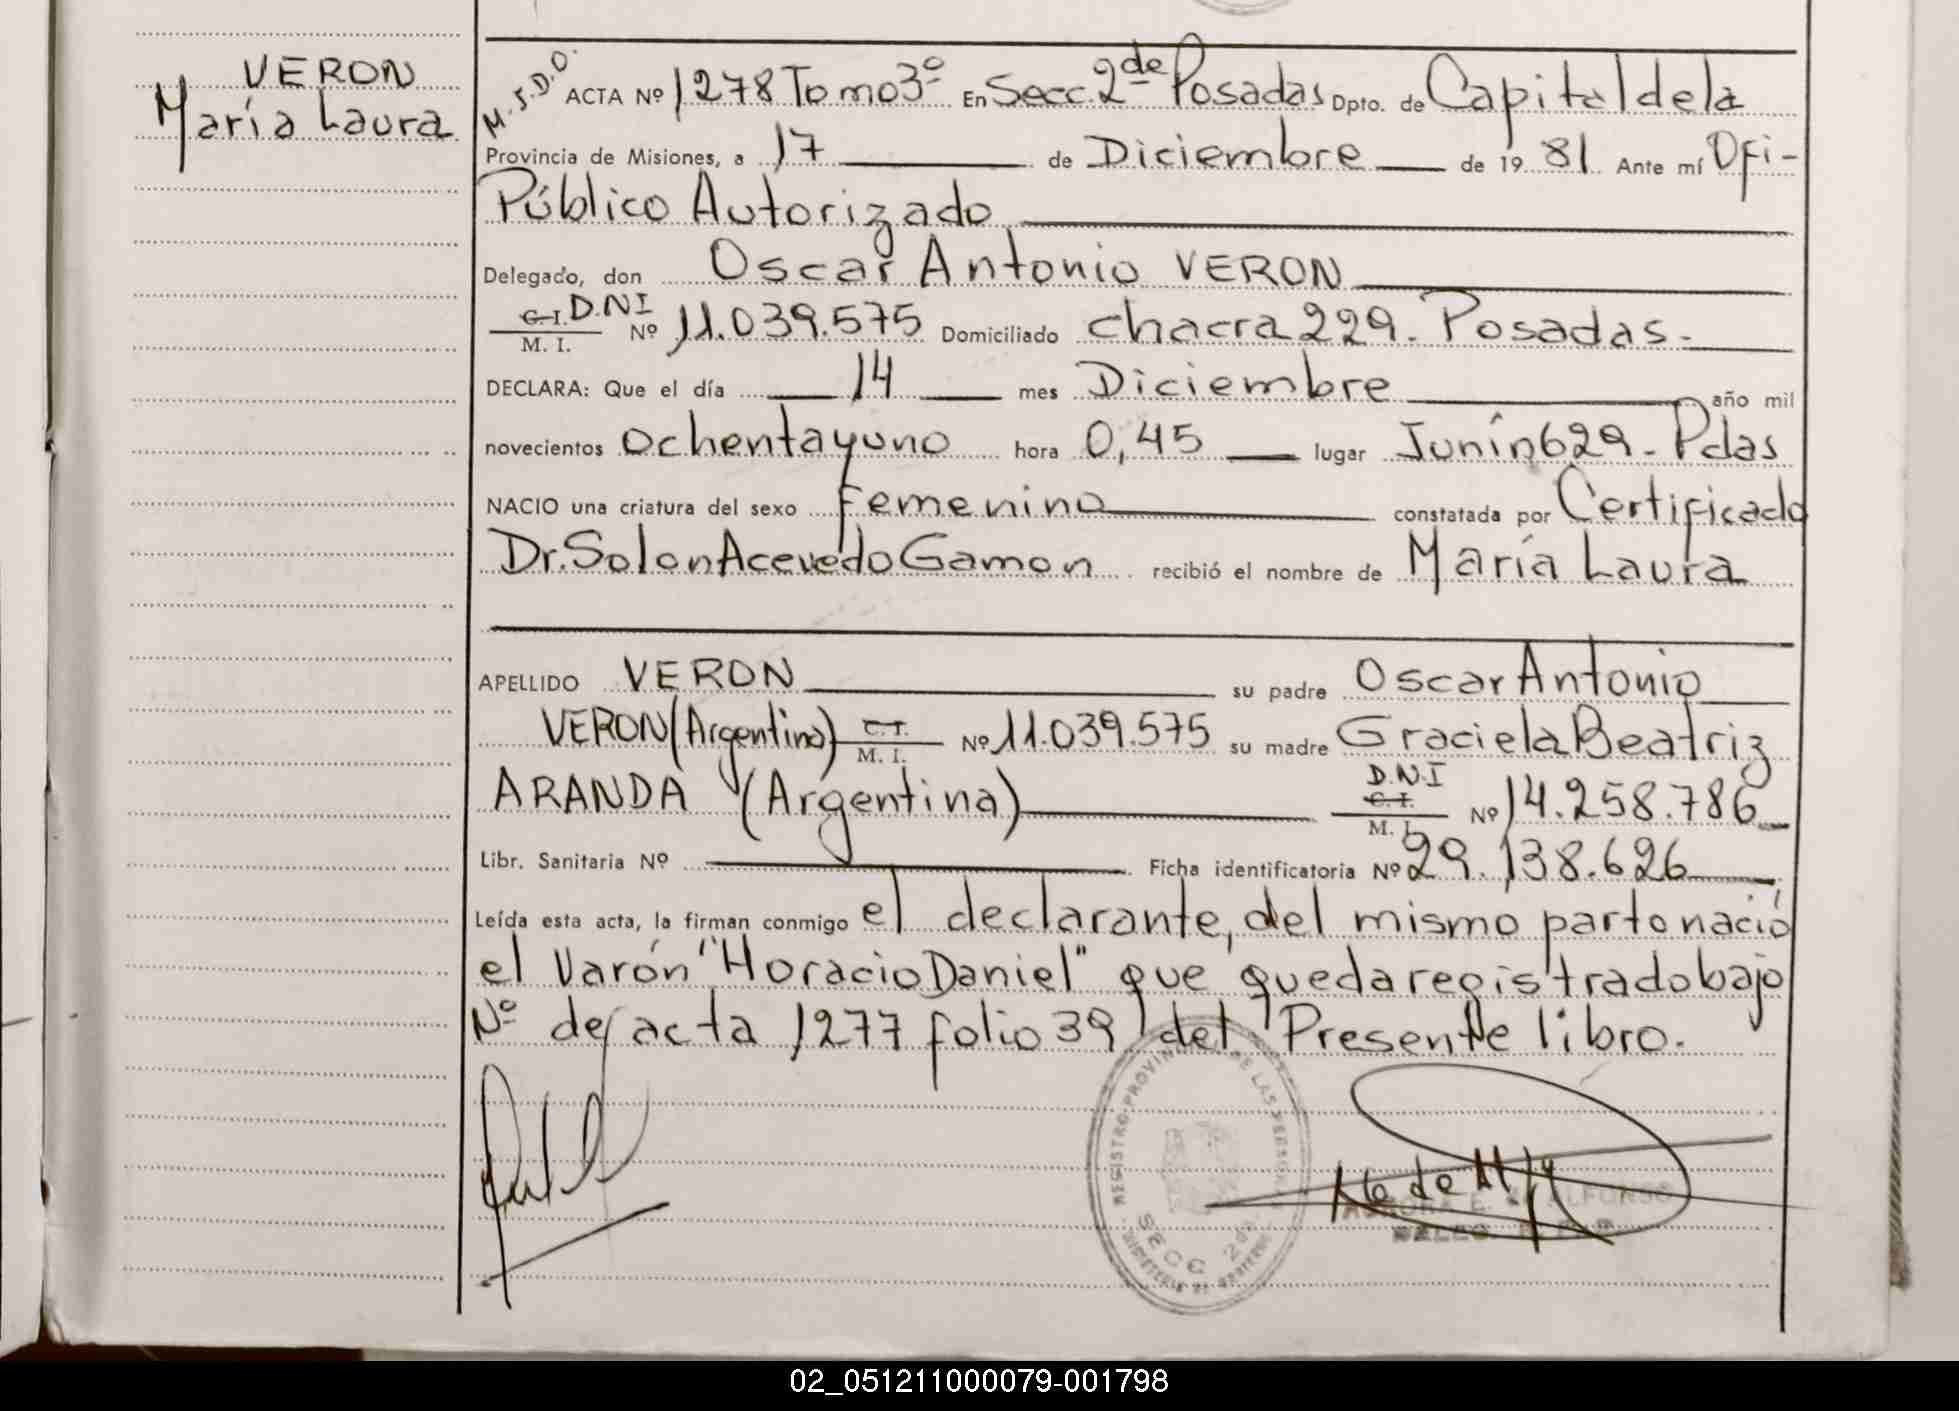 VERON
María Laura
M.S.D.O.
ACTA Nº 1278 Tomo 3º En Secc. 2da de Posadas Dpto. de Capital de la
Provincia de Misiones, a 17 de Diciembre de 1981. Ante mí Ofi-
Público Autorizado
Delegado, don Oscar Antonio VERON
C.I. D.NI
M. I. Nº 11.039.575 Domiciliado chacra 229. Posadas.-
DECLARA: Que el día 14 mes Diciembre año mil
novecientos ochentayuno hora 0,45 lugar Junín 629. Pdas
NACIO una criatura del sexo femenino constatada por Certificado
Dr. Solon Acevedo Gamon recibió el nombre de María Laura
APELLIDO VERON su padre Oscar Antonio
VERON (Argentino) C.I. M. I. Nº 11.039.575 su madre Graciela Beatriz
D.N.I
ARANDA (Argentina) C.I. M. I. Nº 14.258.786
Libr. Sanitaria Nº Ficha identificatoria Nº 29.138.626
Leída esta acta, la firman conmigo el declarante, del mismo parto nació
el Varón "Horacio Daniel" que queda registrado bajo
Nº de acta 1277 folio 39 del Presente libro.
REGISTRO PROVINCIAL DE LAS PERSONAS
SECC 2da
02_051211000079-001798